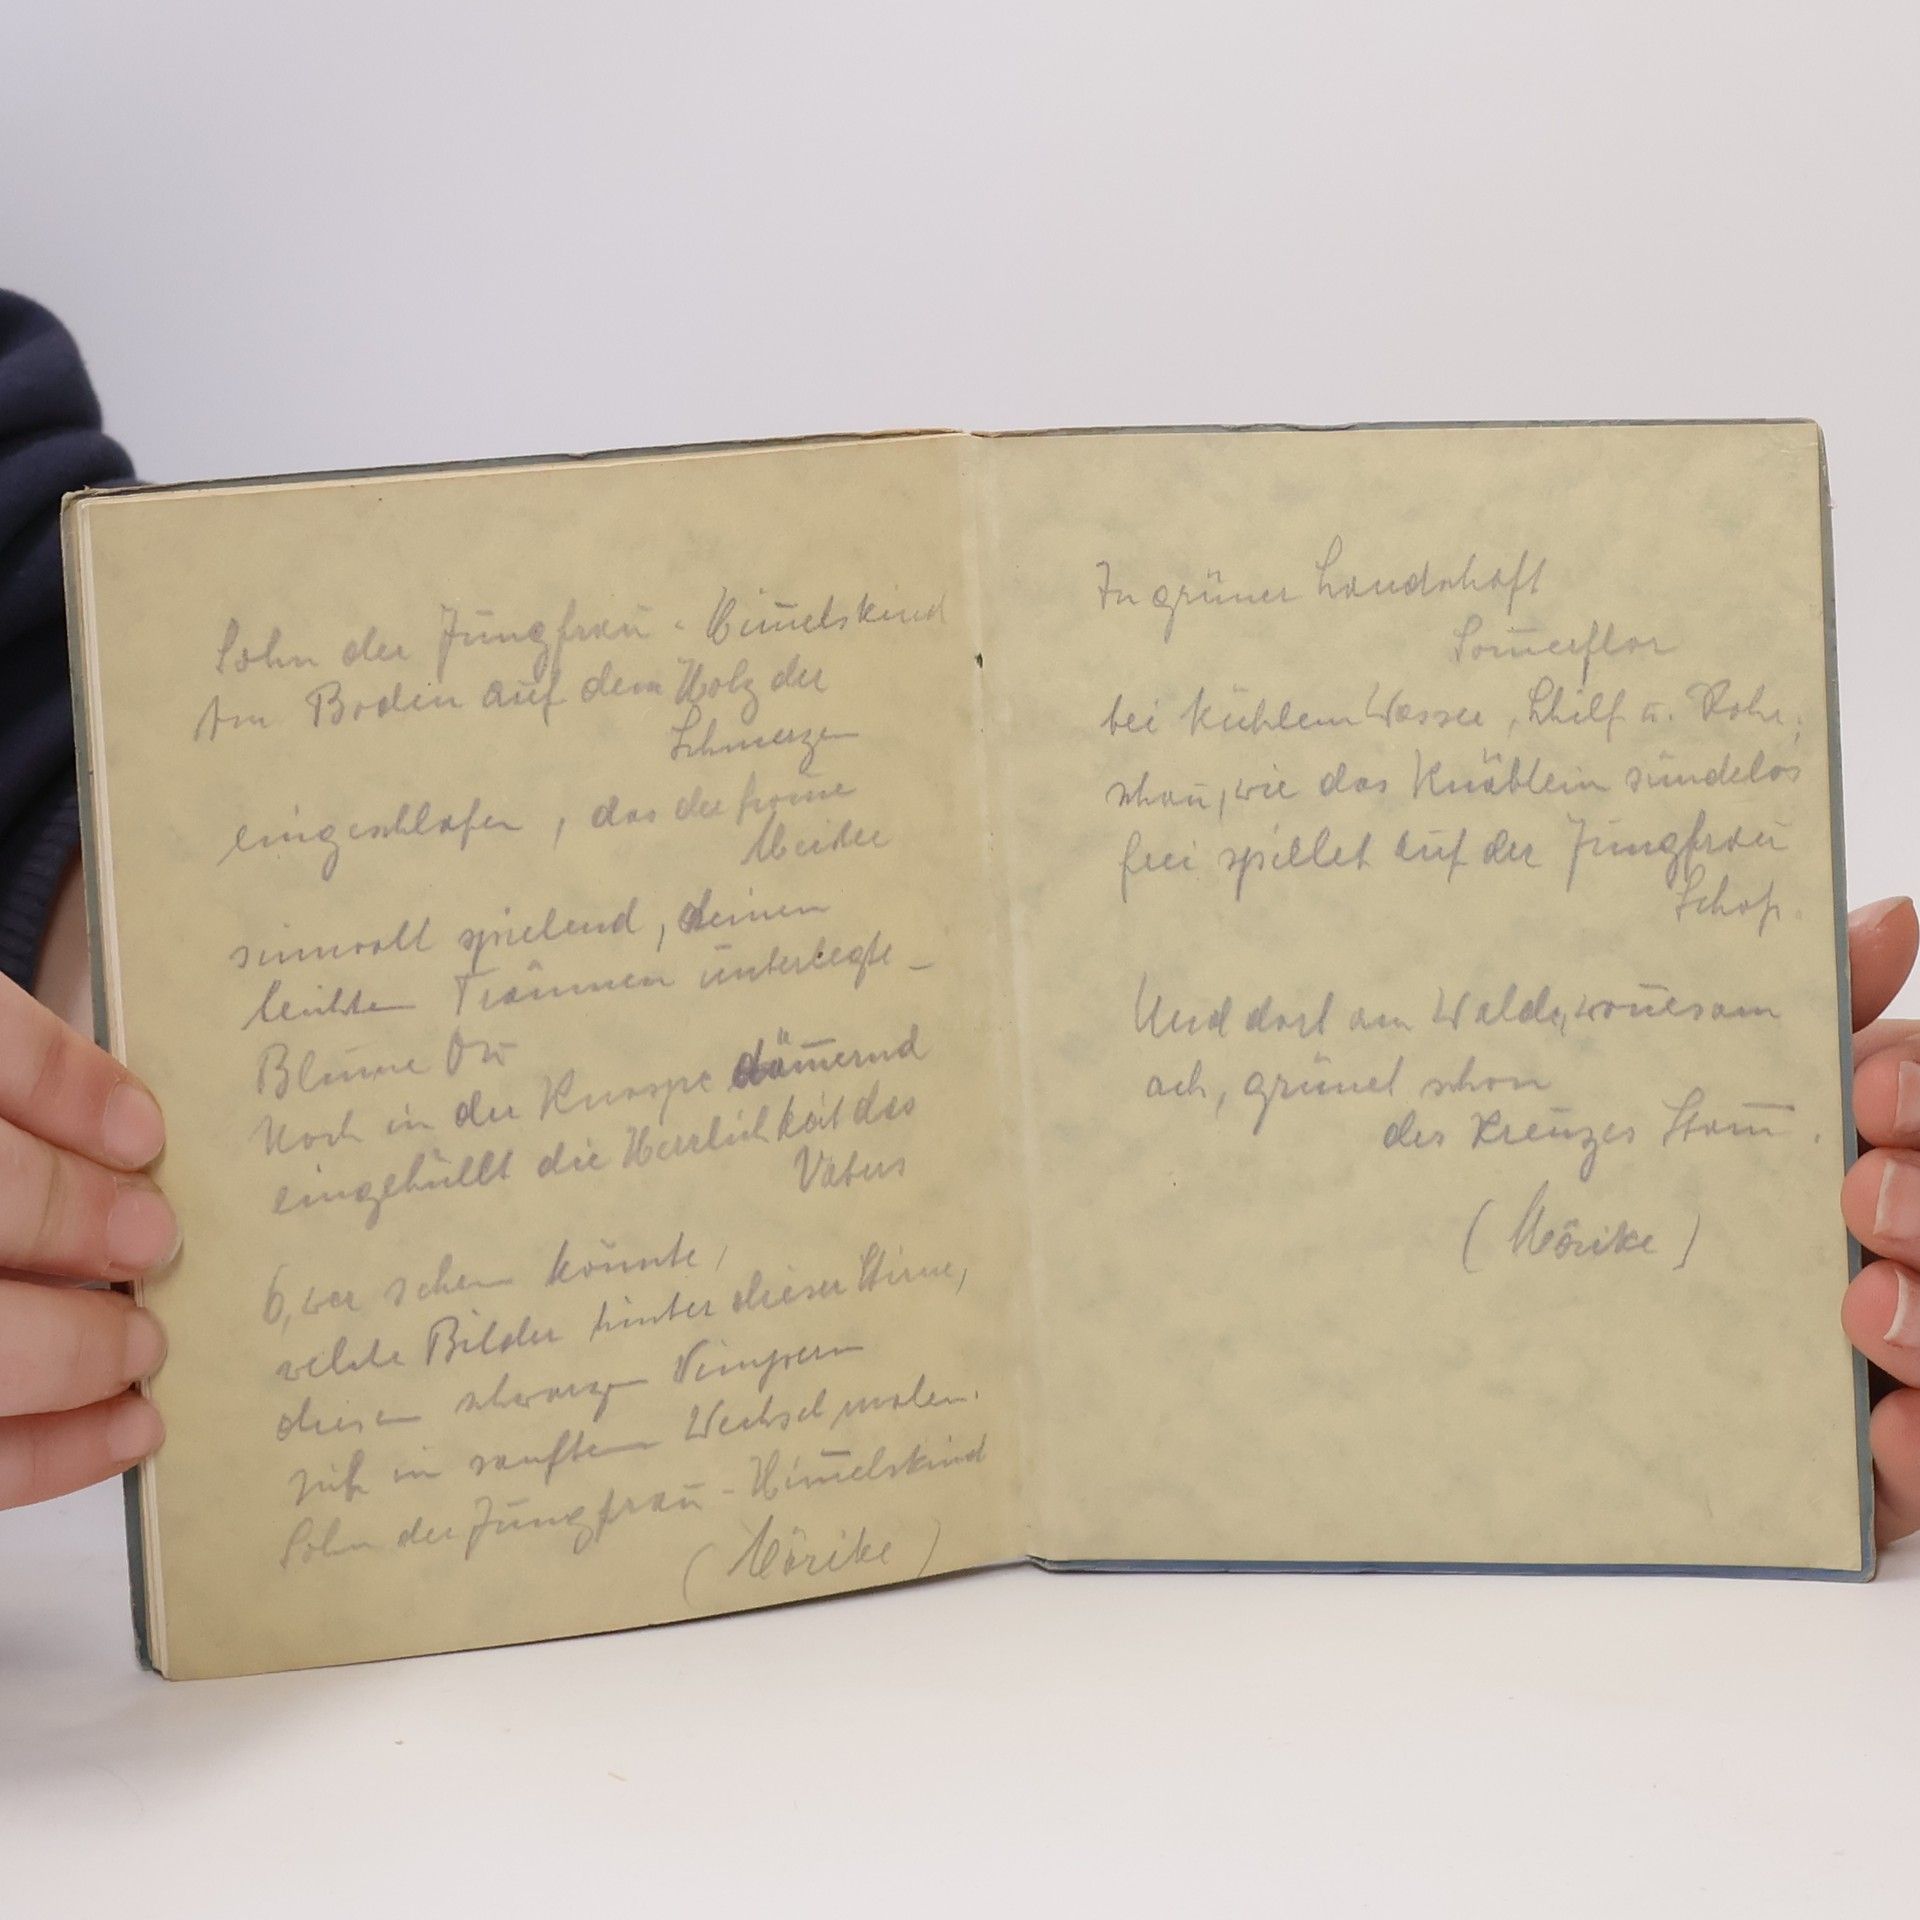 Sohn der Jungfrau - Him̅elskind
Am Boden auf dem Holz der
Schmerzen
eingeschlafen, das der from̅e
Meister
sinnvoll spielend, deinen
leichten Träumen unterlegte –
Blume Du
Noch in der Knospe däm̅ernd
eingehüllt die Herrlichkeit des
Vaters
O, wer sehen könnte,
welche Bilder hinter dieser Stirne,
diesen schwarzen Wimpern
sich in sanftem Wechsel malen.
Sohn der Jungfrau - Him̅elskind
(Mörike)
In grüner Landschaft
Som̅erflor
bei kühlem Wasser, Schilf u. Rohr,
schau, wie das Knäblein sündelos
frei spielet auf der Jungfrau
Schoß.
Und dort am Walde, won̅esam
ach, grünet schon
des Kreuzes Stam̅.
(Mörike)